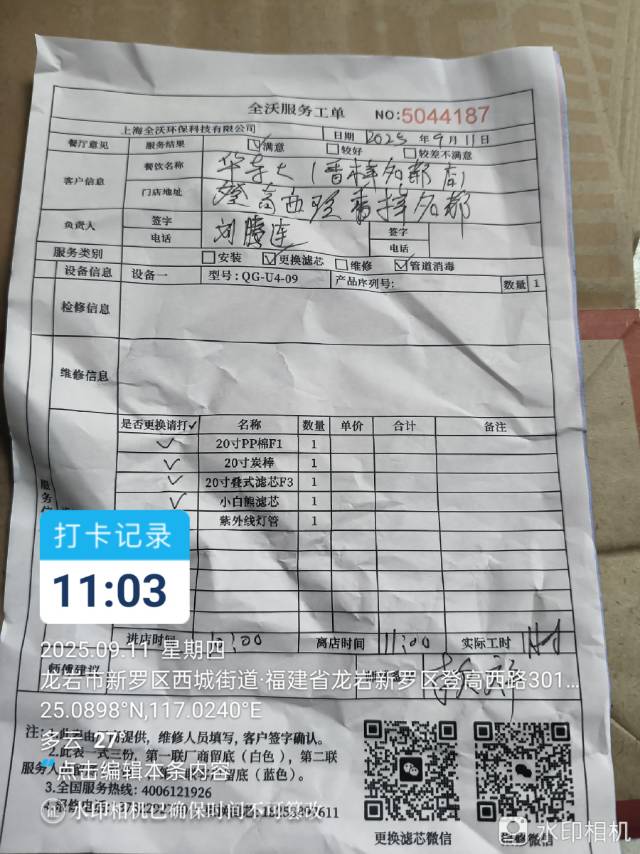 全沃服务工单 NO:5044187
上海全沃环保科技有限公司 日期 2025年9月11日
餐厅意见 服务结果 ☑满意 □较好 □较差不满意
客户信息 餐饮名称 华莱士(香樟名都店)
门店地址 登高西路香樟名都
负责人 签字 刘腾连 签字
电话 电话
服务类别 □安装 ☑更换滤芯 □维修 ☑管道消毒
设备信息 设备一 型号:QG-U4-09 产品序列号: 数量 1
检修信息
维修信息
是否更换请打✓ 名称 数量 单价 合计 备注
✓ 20寸PP棉F1 1
✓ 20寸炭棒 1
✓ 20寸叠式滤芯F3 1
✓ 小白熊滤芯 1
紫外线灯管 1
打卡记录
11:03
进店时间 离店时间 11:00 实际工时
2025.09.11 星期四
师傅建议
龙岩市新罗区西城街道·福建省龙岩新罗区登高西路301...
25.0898°N,117.0240°E
多云 27℃
提供，维修人员填写，客户签字确认。
一式三份，第一联厂商留底（白色），第二联
服务人 留底（蓝色）。
点击编辑本条内容
3.全国服务热线: 4006121926
水印相机已确保时间不可篡改
更换滤芯微信
水印相机